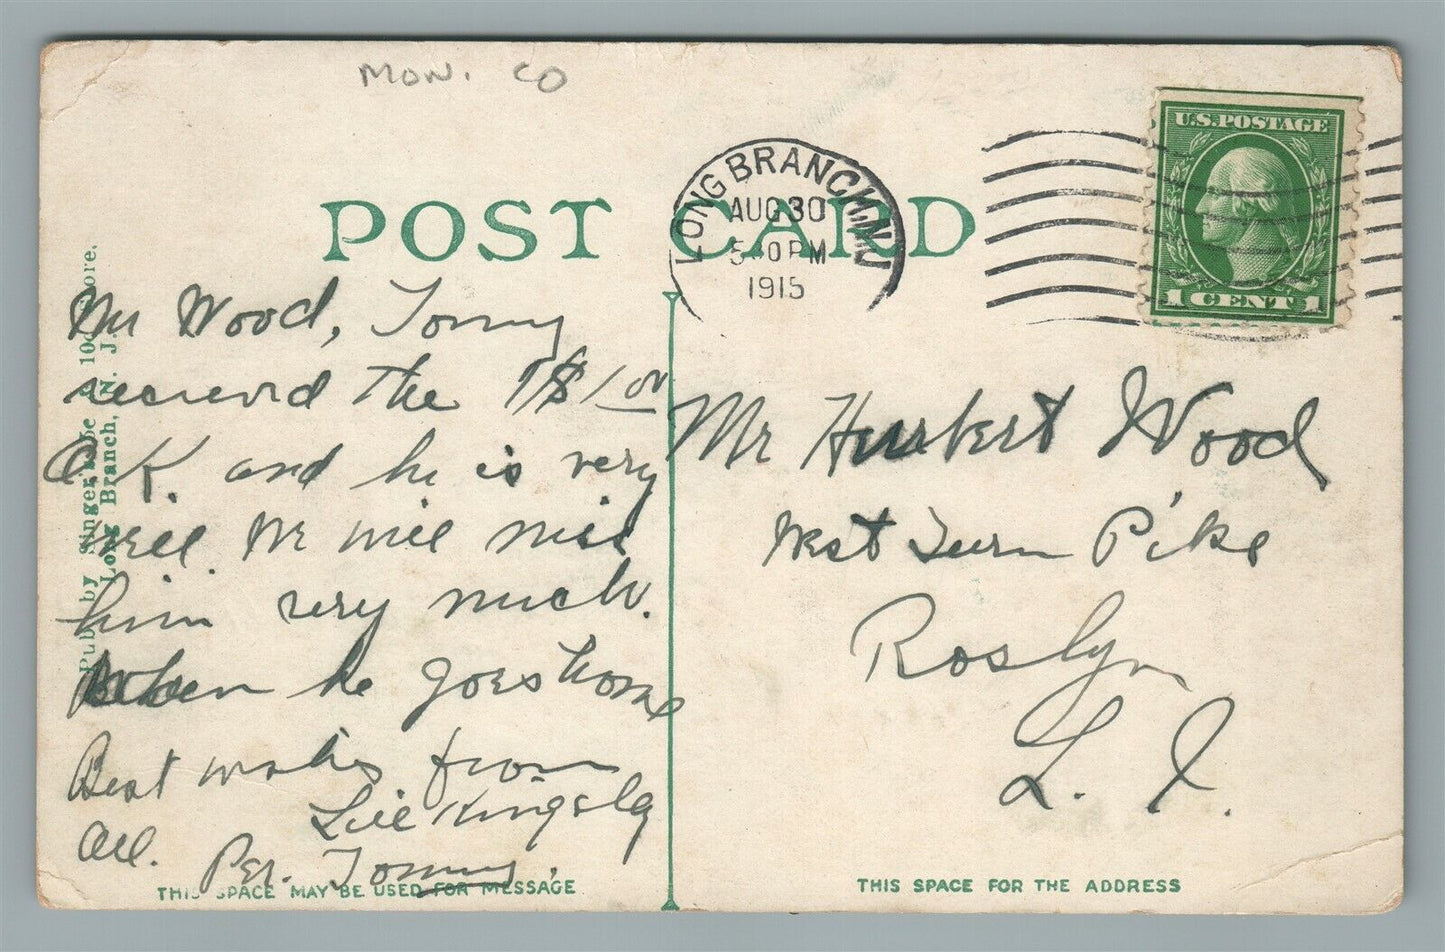 MON. CO
U.S.POSTAGE
1 CENT 1
LONG BRANCH, N.J.
AUG 30
5 30 PM
1915
POST CARD
Mr Wood, Tommy
received the $1 00
O.K. and he is very
well. We will miss
him very much.
When he goes home
Best wishes from
All. Lill Kingsley
Per. Tommy.
Mr Herbert Wood
West Turn Pike
Roslyn
L. I.
Pub. by Singer, 10c Store.
Long Branch, N. J.
THIS SPACE MAY BE USED FOR MESSAGE
THIS SPACE FOR THE ADDRESS